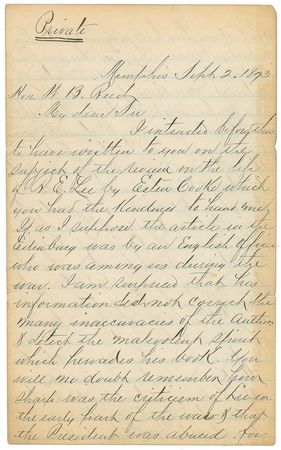 Private
Memphis Sept. 2. 1873
Hon W. B. Reed
My dear Sir
I intended before this
to have written to you on the
subject of the review on the life
of R. E. Lee by Esten Cooke which
you had the kindness to hand me.
If as I suppose the article in the
Edinburg was by an English officer
who was among us during the
war. I am surprised that his
information did not correct the
many inaccuracies of the Author
& detect the malevolent spirit
which pervades his book. You
will no doubt remember how
sharp was the criticism of Lee in
the early part of the war & that
the President was abused for